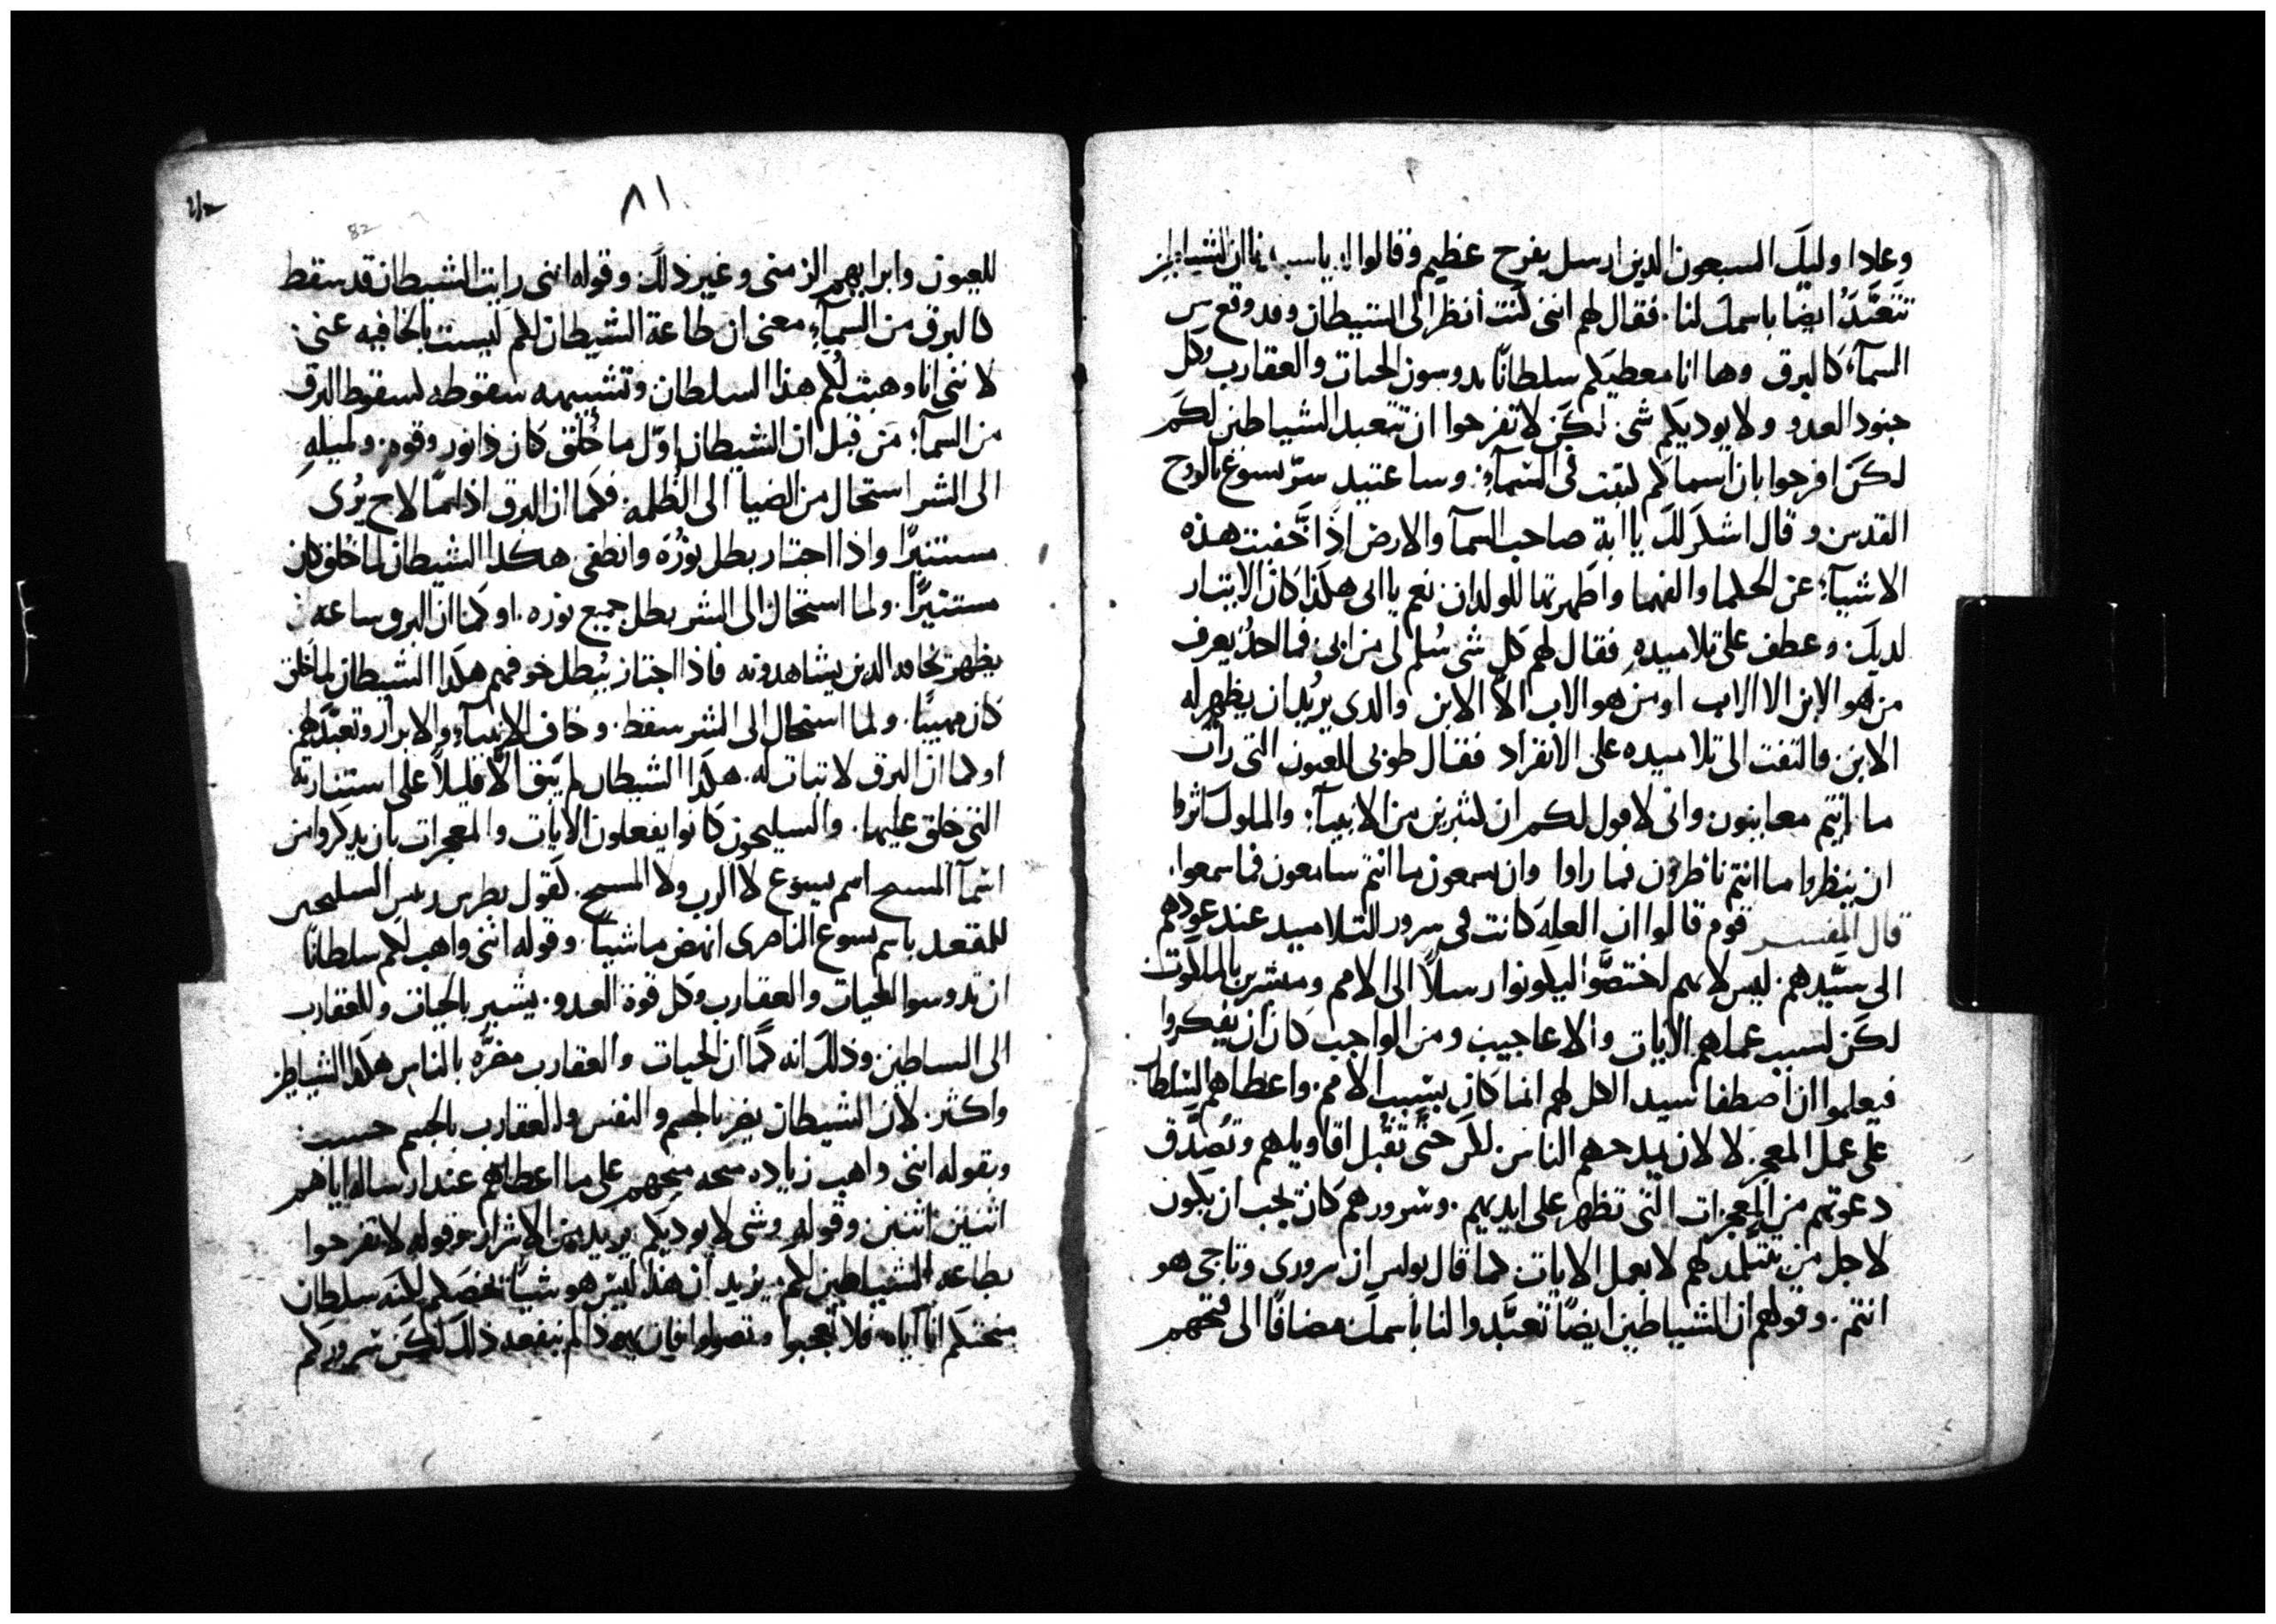 وعادا وليك السبعون الدين ارسل بفرح عظيم وقالوا له يا سيدنا ان الشياطين
تتعبّد ايضا باسمك لنا. فقال لهم انني كنت أنظر الى الشيطان وقد وقع من
السمآء كالبرق وها انا معطيكم سلطانًا تدوسون الحيات والعقارب وكل
جنود العدو ولا يوديكم شى. لكن لا تفرحوا ان تتعبد الشياطين لكم
لكن افرحوا بان اسماكم كتبت في السمآء. وساعتيد سرّ يسوع بالروح
القدس وقال اشكر لك يا ابة صاحب السمآ والارض اذ اخفيت هذه
الاشيآء عن الحكما والفهما واظهرتها للولدان نعم يا ابى هكذا كان الايثار
لديك. وعطف على تلاميده فقال لهم كل شى سُلم لى من ابى فما احدٌ يعرف
من هو الابن الا الاب او من هو الاب الا الابن والدى يريد ان يظهر له
الابن والتفت الى تلاميده على الانفراد فقال طوبى للعيون التى رات
ما انتم معاينون وانى لاقول لكم ان كثيرين من الانبيآء والملوك اثروا
ان ينظروا ما انتم ناظرون فما راوا وان يسمعون ما انتم سامعون فما سمعوا.
قال المفسر قوم قالوا ان العله كانت فى سرور التلاميد عند عودهم
الى سيّدهم. ليس لانهم اختصّوا ليكونوا رسلاً الى الامم ومبشرين بالملكوت
لكن لسبب عملهم الآيات والاعاجيب ومن الواجب كان ان يفكروا
فيعلموا ان اصطفا سيد الكل لهم انما كان بسبب الامم. واعطاهم السلطان
على عمل المعجز. لا لان يمدحهم الناس. لكن حتى تقبل اقاويلهم وتُصدّق
دعوتهم من المعجزات التى تظهر على ايديهم. وسرورهم كان يجب ان يكون
لاجل من يتتلمد لهم لا بعمل الايات كما قال بولس ان سرورى وتاجى هو
انتم. وقولهم ان الشياطين ايضًا تعبّدوا لنا باسمك مضافًا الى فتحهم
٨١
82
للعيون وابرايهم الزمنى وغير ذلك وقوله اننى رايت الشيطان قد سقط
كالبرق من السمآء معنى ان طاعة الشيطان لكم ليست بالخافيه عنى.
لاننى انا وهبت لكم هذا السلطان وتشبيهه سقوطه لسقوط البرق
من السمآء من قبل ان الشيطان اوّل ما خُلق كان ذا نور وقوه. ولميله
الى الشر استحال من الضيا الى الظلمه. فكما ان البرق اذا مّا لاح يُرى
مستنيرًا واذا اجتاز بطل نورُه وانطفى هكدا الشيطان لما خلق كان
مستنيرًا. ولما استحال الى الشر بطل جميع نوره. او كما ان البرق ساعه
يظهر يخافه الدين يشاهدونه فاذا اجتاز يُبطل خوفهم هكدا الشيطان لما خلق
كان مهيبًا. ولما استحال الى الشر سقط. وخاف الانبيآء والابرار وتعبّد لهم.
او كما ان البرق لا تبات له. هكدا الشيطان لم يبق الا قليلاً على استنارته
التى خلق عليها. والسليحون كانوا يفعلون الايات والمعجزات بان يدكروا من
اسمآ المسيح اسم يسوع لا الرب ولا المسيح. لقول بطرس ريس السليحين
للمقعد باسم يسوع الناصرى انهض ماشيًا. وقوله اننى واهب لكم سلطانًا
ان تدوسوا الحيات والعقارب وكل قوة العدو. يشير بالحيات والعقارب
الى الشياطين وذلك انه كما ان الحيات والعقارب مضرّه بالناس هكدا الشياطين
واكثر. لان الشيطان يضر بالجسم والنفس والعقارب بالجسم حسب.
وبقوله اننى واهب زياده منحه منحهم على ما اعطاهم عند ارساله اياهم
اثنين اثنين وقوله وشى لا يوديكم يريد من الاشرار وقوله لا تفرحوا
بطاعه الشياطين لكم. يريد ان هذا ليس هو شيًا يخصكم لكنه سلطان
منحتكم انا اياه فلا تعجبوا وتصولوا فان بهذا لم ينفعه ذلك لكن سروركم